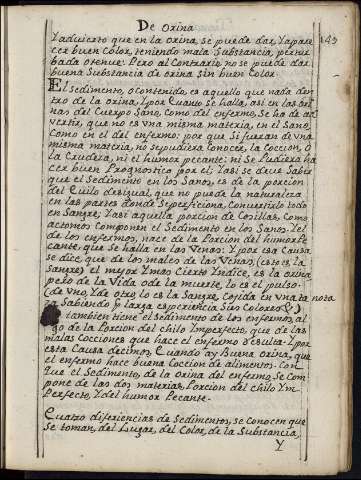 De Orina
149
Y advierto que en la orina, se puede dar, Y apare
cer buen Color, teniendo mala Substancia, pertur
bada otenue: Pero al Contrario no se puede dar
buena Substancia de orina sin buen Color.
El Sedimento, o Contenido, es aquello que nada den
tro de la orina, Y por Cuanto se halla, asi en las ori
nas del Cuerpo Sano, Como del enfermo, Se ha de ad
vertir, que no es vna misma materia, en el Sano,
Como en el del enfermo: por que si fueran de vna
misma materia, no se pudiera Conocer, la Coccion, o
la Crudeza, ni el humor pecante: ni se Pudiera ha
cer buen Prognostico por el; Y asi se deue Saber
que el Sedimento en los Sanos, es de la porcion
del Quilo desigual, que no puede la naturaleza
en las partes donde Se perficiona, Convertirlo todo
en Sangre, Y asi aquella porcion de Cosillas, Como
actomos Componen el Sedimento en los Sanos. Y el
de los enfermos, nace de la Porcion del humor Pe
cante, que se halla en las Venas: Y por esa Causa
se dice, que de los males de las Venas, (esto es, la
Sangre) el mayor Y mas Cierto Yndice, es la orina
pero de la Vida o de la muerte, lo es el pulso.
(de vno, Y de otro lo es la Sangre, Cojida en vna taza
Sabiendo Y larga experiencia Sus Colores &.)
tambien tiene el Sedimento de los enfermos, al
go de la Porcion del chilo Imperfecto, que de las
malas Cocciones que hace el enfermo resulta: Y por
esta Causa decimos, Cuando ay Buena orina, que
el enfermo hace buena Coccion de alimentos. Con
que el Sedimento, de la orina del enfermo, Se Com
pone de las dos materias, Porcion del chilo Ym
Perfecto, Y del humor Pecante.
Cuatro diferiencias de Sedimentos, se conocen que
Se toman, del Lugar, del Color, de la Substancia,
Y